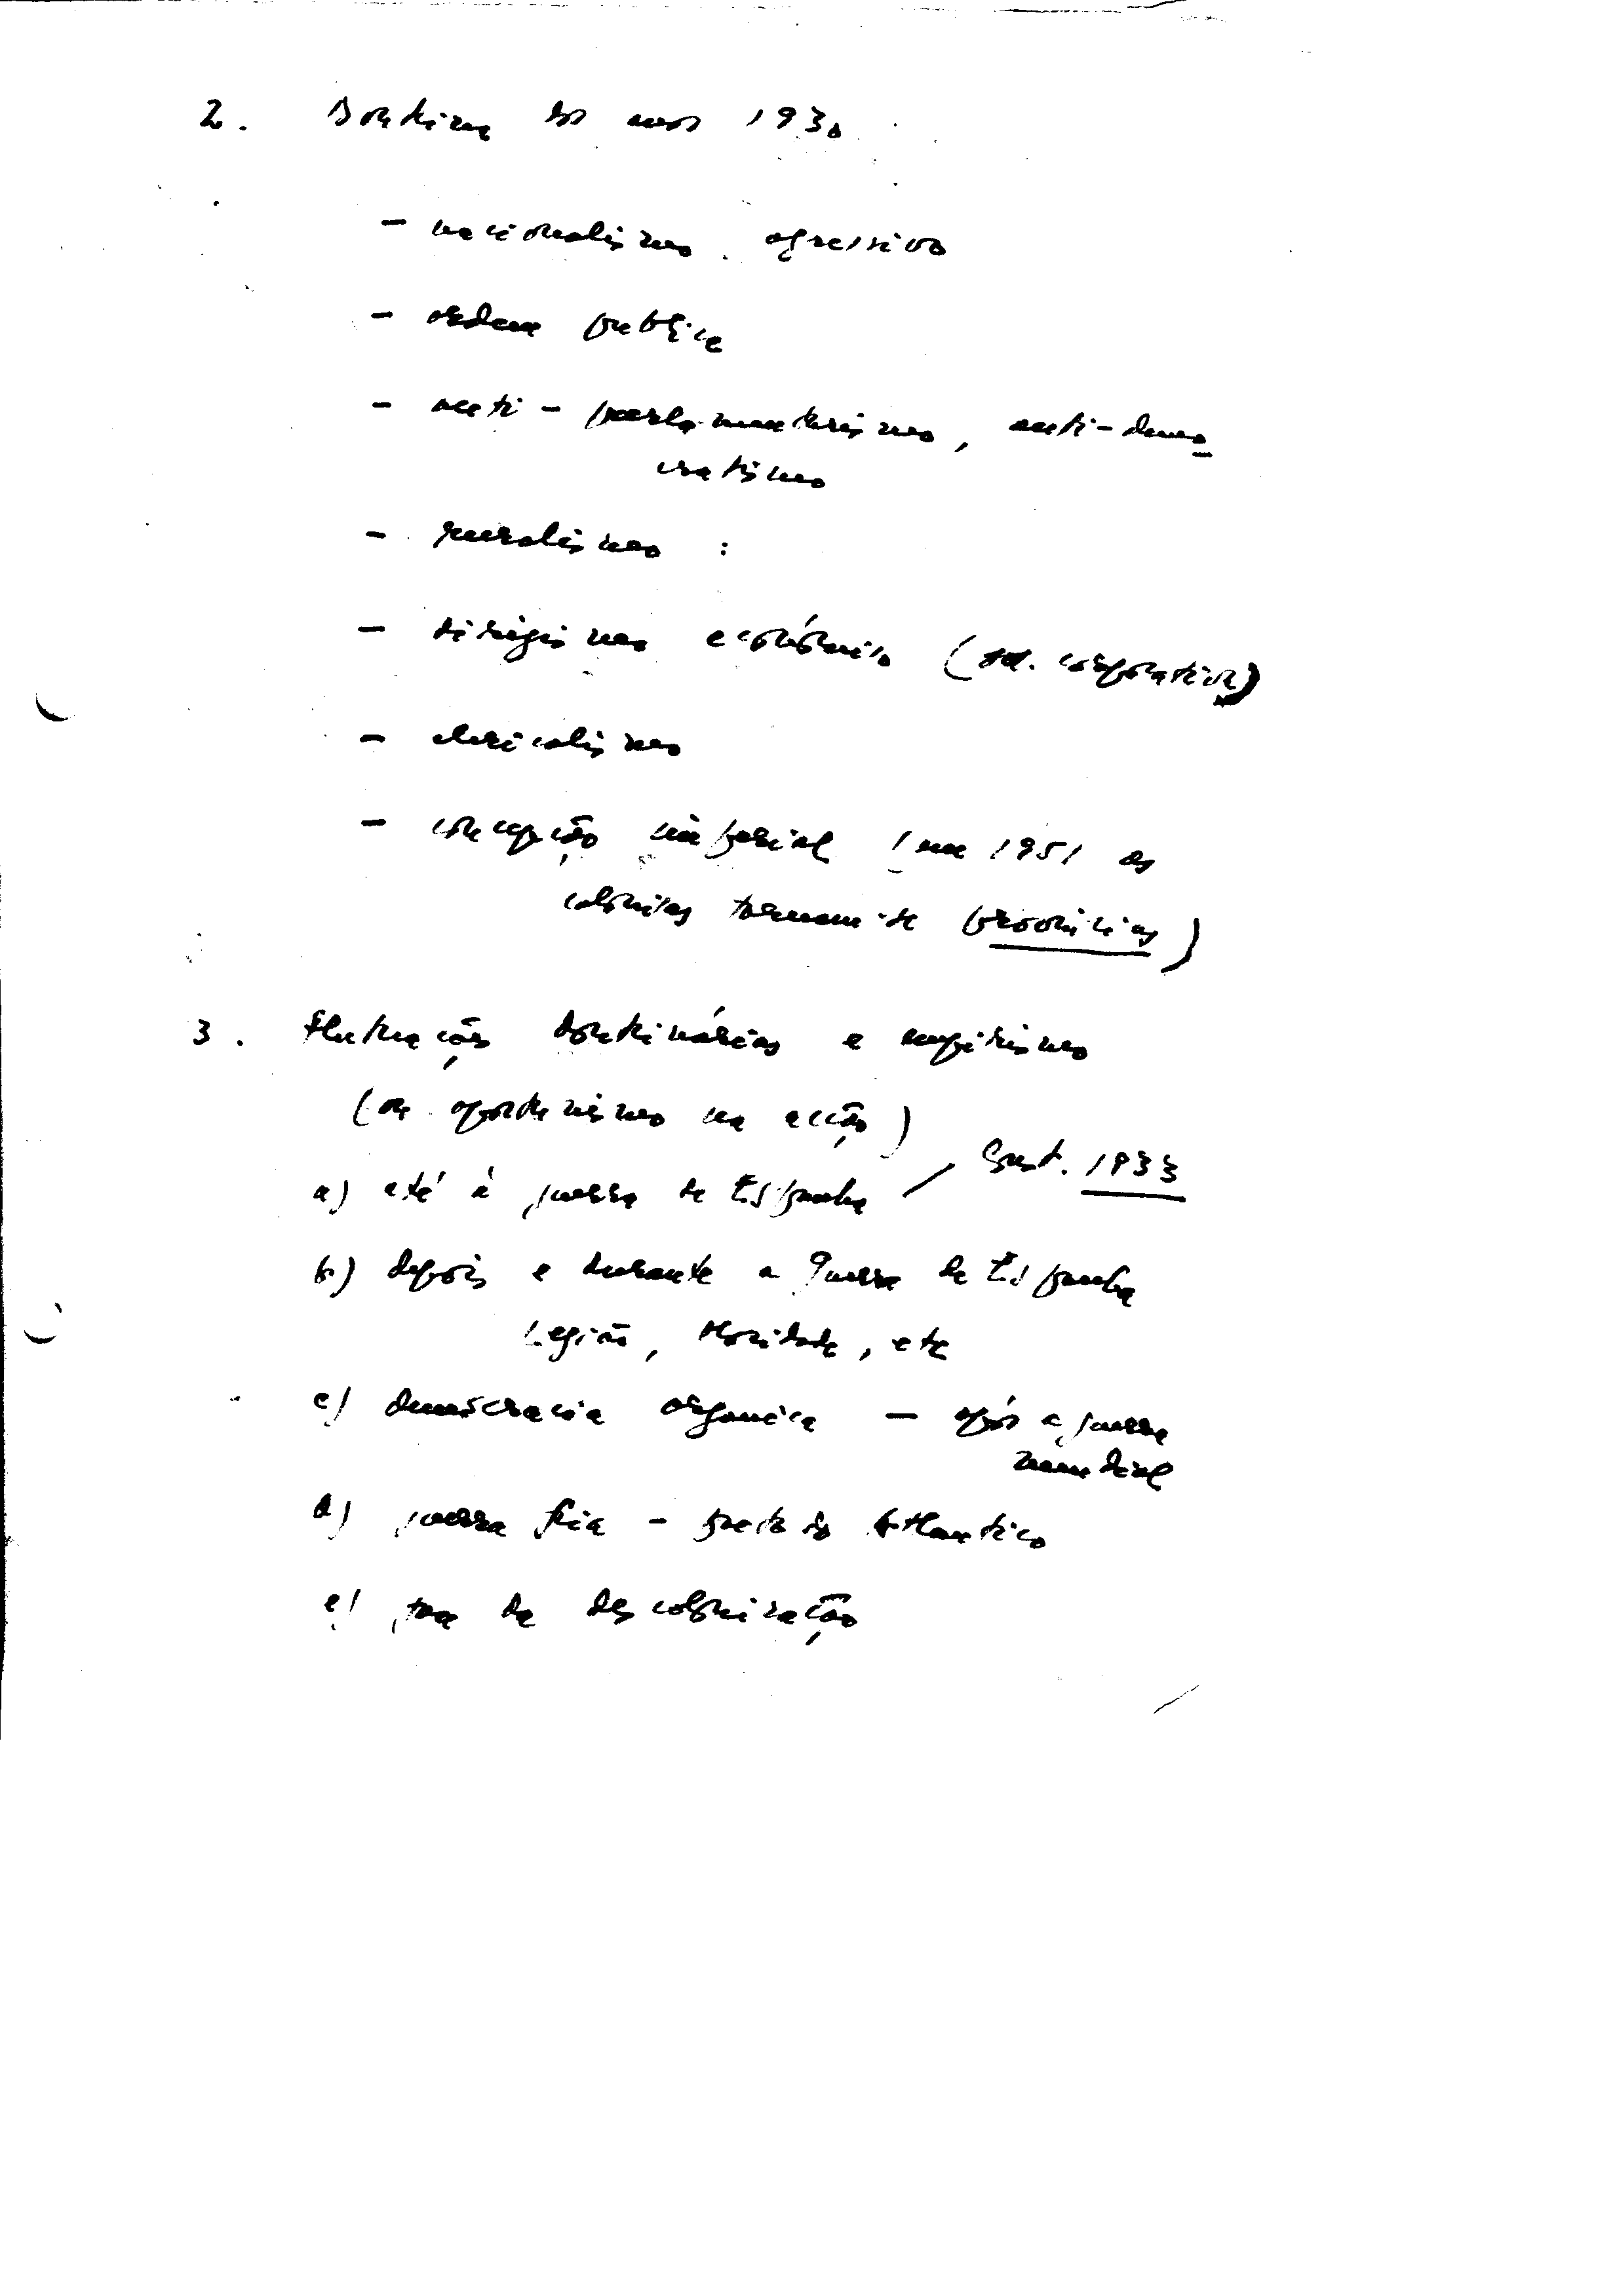 2. Doutrina dos anos 1930
- nacionalismo agressivo
- ordem publica
- anti-parlamentarismo, anti-demo
cratismo
- ruralismo :
- dirigismo económico (est. corporativo)
- clericalismo
- concepção imperial (em 1951 as
colónias tornam-se províncias)
3. Flutuações doutrinárias e empirismo
(ou oportunismo na acção)
a) até à guerra de Espanha / Const. 1933
b) depois e durante a Guerra de Espanha
Legião, Mocidade, etc
c) democracia organica - após a guerra
mundial
d) guerra fria - pacto do Atlantico
e) fase da descolonização